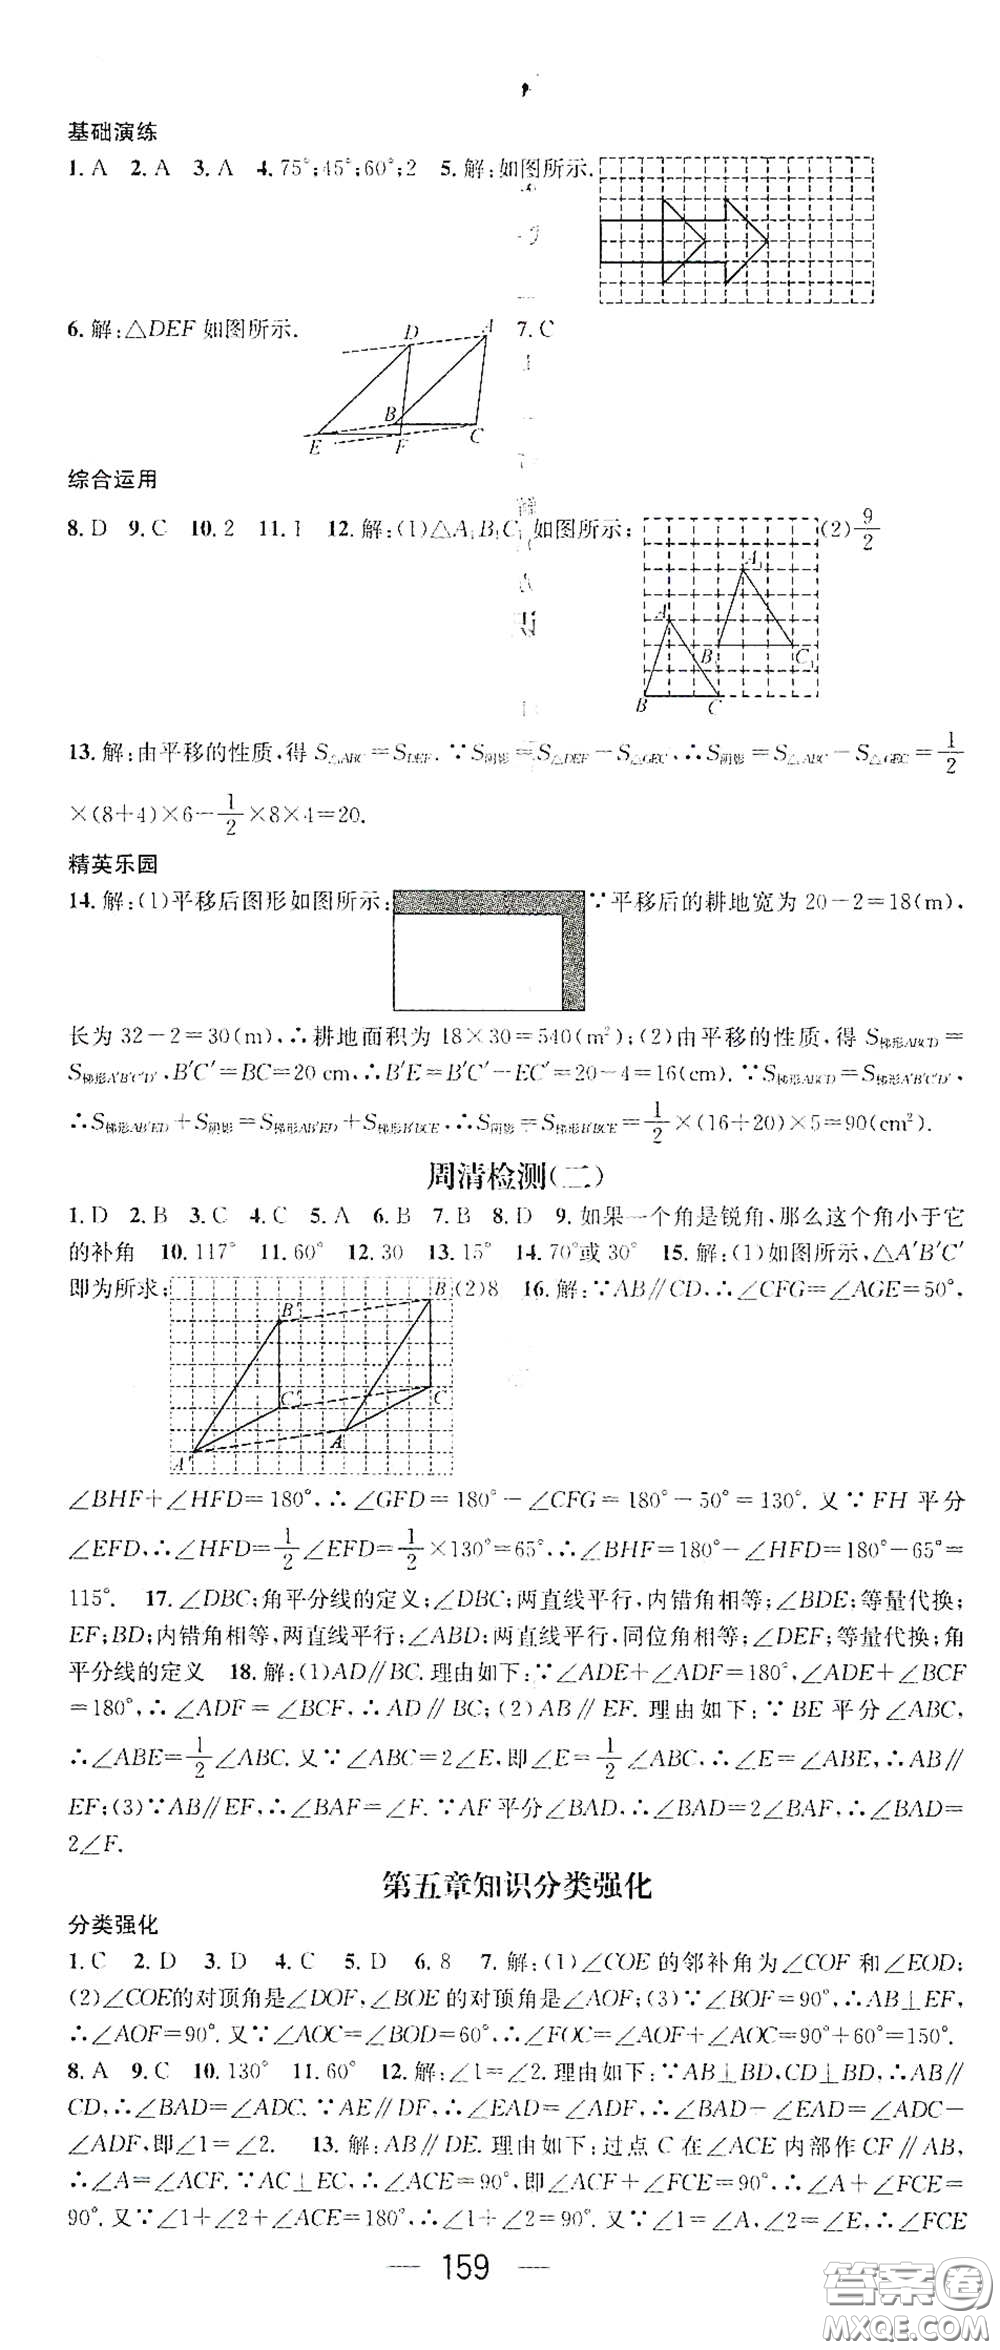 基础演练
1. A 2. A 3. A 4. 75°;45°;60°;2 5. 解:如图所示.
6. 解:△DEF 如图所示. 7. C
D A
B
E F C
综合运用
8. D 9. C 10. 2 11. 1 12. 解:(1)△A₁B₁C₁ 如图所示; (2) 9/2
A₁
A
B₁ C₁
B C
13. 解:由平移的性质,得 S△ABC=SDEF. ∵S阴影=S△DEF-S△GEC=S阴影=S△ABC-S△GEC=1/2
×(8+4)×6-1/2×8×4=20.
精英乐园
14. 解:(1)平移后图形如图所示: ∵平移后的耕地宽为 20-2=18(m),
长为 32-2=30(m),∴耕地面积为 18×30=540(m²);(2)由平移的性质,得 S梯形ABCD=
S梯形A′B′C′D′,B′C′=BC=20 cm,∴B′E=B′C′-EC′=20-4=16(cm). ∵S梯形ABCD=S梯形A′B′C′D′,
∴S梯形AB′ED+S阴影=S梯形AB′ED+S梯形B′BCE,∴S阴影=S梯形B′BCE=1/2×(16+20)×5=90(cm²).
周清检测(二)
1. D 2. B 3. C 4. C 5. A 6. B 7. B 8. D 9. 如果一个角是锐角,那么这个角小于它
的补角 10. 117° 11. 60° 12. 30 13. 15° 14. 70°或 30° 15. 解:(1)如图所示,△A′B′C′
即为所求; (2)8 16. 解:∵AB∥CD,∴∠CFG=∠AGE=50°,
B
B′
C′ C
A′ A
∠BHF+∠HFD=180°,∴∠GFD=180°-∠CFG=180°-50°=130°. 又∵FH 平分
∠EFD,∴∠HFD=1/2∠EFD=1/2×130°=65°,∴∠BHF=180°-∠HFD=180°-65°=
115°. 17. ∠DBC;角平分线的定义;∠DBC;两直线平行,内错角相等;∠BDE;等量代换;
EF;BD;内错角相等,两直线平行;∠ABD;两直线平行,同位角相等;∠DEF;等量代换;角
平分线的定义 18. 解:(1)AD∥BC. 理由如下:∵∠ADE+∠ADF=180°,∠ADE+∠BCF
=180°,∴∠ADF=∠BCF,∴AD∥BC;(2)AB∥EF. 理由如下:∵BE 平分∠ABC,
∴∠ABE=1/2∠ABC. 又∵∠ABC=2∠E,即∠E=1/2∠ABC,∴∠E=∠ABE,∴AB∥
EF;(3)∵AB∥EF,∴∠BAF=∠F. ∵AF 平分∠BAD,∴∠BAD=2∠BAF,∴∠BAD=
2∠F.
第五章知识分类强化
分类强化
1. C 2. D 3. D 4. C 5. D 6. 8 7. 解:(1)∠COE 的邻补角为∠COF 和∠EOD;
(2)∠COE的对顶角是∠DOF,∠BOE 的对顶角是∠AOF;(3)∵∠BOF=90°,∴AB⊥EF,
∴∠AOF=90°. 又∵∠AOC=∠BOD=60°,∴∠FOC=∠AOF+∠AOC=90°+60°=150°.
8. A 9. C 10. 130° 11. 60° 12. 解:∠1=∠2. 理由如下:∵AB⊥BD,CD⊥BD,∴AB∥
CD,∴∠BAD=∠ADC. ∵AE∥DF,∴∠EAD=∠ADF,∴∠BAD-∠EAD=∠ADC-
∠ADF,即∠1=∠2. 13. 解:AB∥DE. 理由如下:过点 C 在∠ACE 内部作 CF∥AB,
∴∠A=∠ACF. ∵AC⊥EC,∴∠ACE=90°,即∠ACF+∠FCE=90°,∴∠A+∠FCE=
90°. 又∵∠1+∠2+∠ACE=180°,∴∠1+∠2=90°. 又∵∠1=∠A,∠2=∠E,∴∠FCE
159
答案圈
MXQE.COM